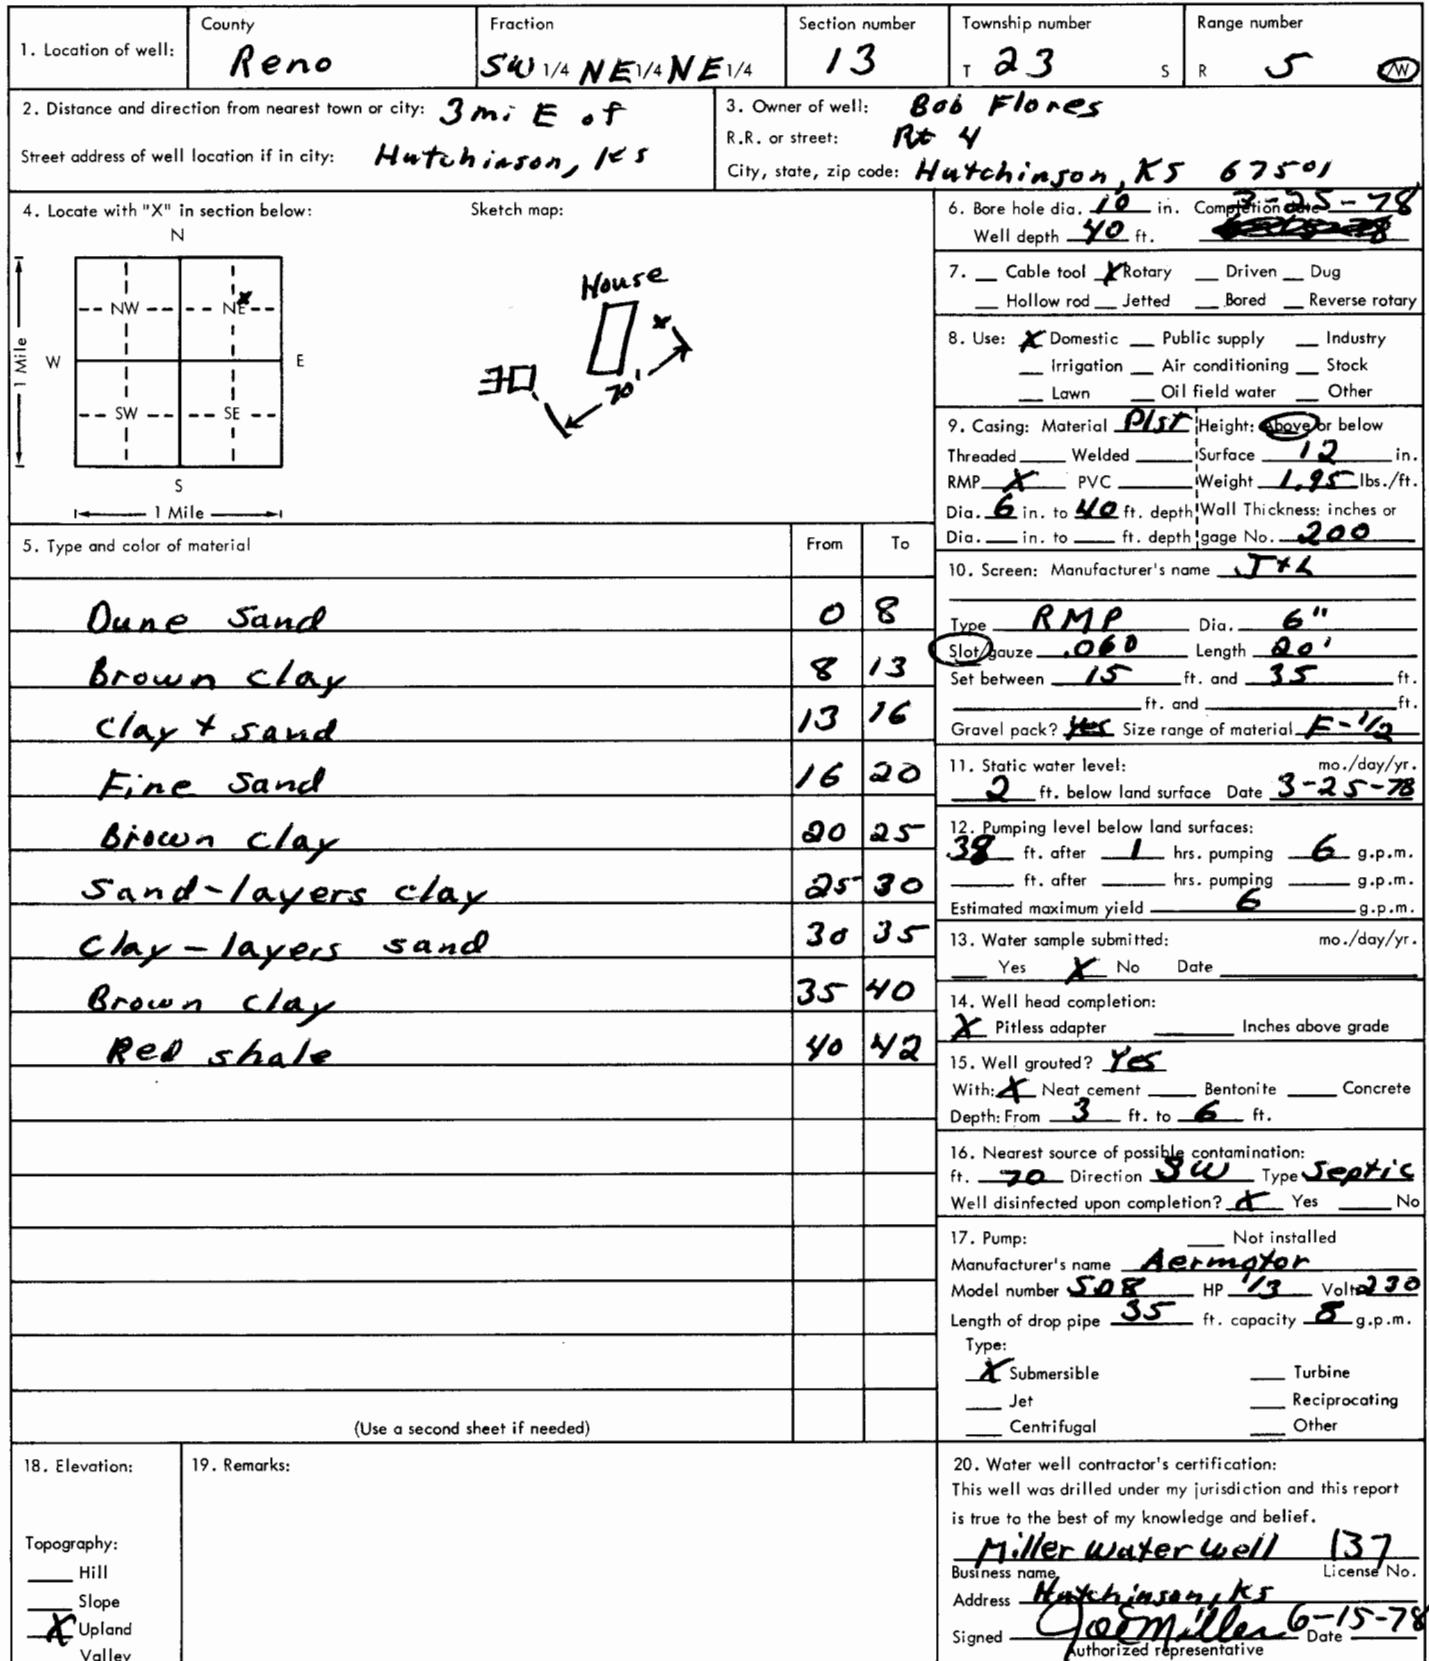 1. Location of well: County Reno Fraction SW 1/4 NE 1/4 NE 1/4 Section number 13 Township number T 23 S Range number R 5 /W
2. Distance and direction from nearest town or city: 3 mi E of
Street address of well location if in city: Hutchinson, KS
3. Owner of well: Bob Flores
R.R. or street: Rt 4
City, state, zip code: Hutchinson, KS 67501
4. Locate with "X" in section below: Sketch map:
N
NW NE X
W E
SW SE
S
1 Mile
1 Mile
House
x
70'
5. Type and color of material From To
Dune Sand 0 8
Brown clay 8 13
Clay + sand 13 16
Fine Sand 16 20
Brown clay 20 25
Sand-layers clay 25 30
Clay - layers sand 30 35
Brown clay 35 40
Red shale 40 42
(Use a second sheet if needed)
6. Bore hole dia. 10 in. Completion date 3-25-78
Well depth 40 ft.
7. __ Cable tool X Rotary __ Driven __ Dug
__ Hollow rod __ Jetted __ Bored __ Reverse rotary
8. Use: X Domestic __ Public supply __ Industry
__ Irrigation __ Air conditioning __ Stock
__ Lawn __ Oil field water __ Other
9. Casing: Material Plst Height: Above or below
Threaded ____ Welded ____ Surface 12 in.
RMP X PVC ____ Weight 1.95 lbs./ft.
Dia. 6 in. to 40 ft. depth Wall Thickness: inches or
Dia. __ in. to __ ft. depth gage No. 200
10. Screen: Manufacturer's name J+L
Type RMP Dia. 6"
Slot/gauze .060 Length 20'
Set between 15 ft. and 35 ft.
____ ft. and ____ ft.
Gravel pack? Yes Size range of material F-1/2
11. Static water level: mo./day/yr.
2 ft. below land surface Date 3-25-78
12. Pumping level below land surfaces:
38 ft. after 1 hrs. pumping 6 g.p.m.
____ ft. after ____ hrs. pumping ____ g.p.m.
Estimated maximum yield 6 g.p.m.
13. Water sample submitted: mo./day/yr.
__ Yes X No Date ____
14. Well head completion:
X Pitless adapter ____ Inches above grade
15. Well grouted? Yes
With: X Neat cement ____ Bentonite ____ Concrete
Depth: From 3 ft. to 6 ft.
16. Nearest source of possible contamination:
ft. 70 Direction SW Type Septic
Well disinfected upon completion? X Yes ____ No
17. Pump: ____ Not installed
Manufacturer's name Aermotor
Model number SD8 HP 1/3 Volts 230
Length of drop pipe 35 ft. capacity 8 g.p.m.
Type:
X Submersible ____ Turbine
____ Jet ____ Reciprocating
____ Centrifugal ____ Other
18. Elevation:
Topography:
____ Hill
____ Slope
X Upland
Valley
19. Remarks:
20. Water well contractor's certification:
This well was drilled under my jurisdiction and this report
is true to the best of my knowledge and belief.
Miller Water Well 137
Business name License No.
Address Hutchinson, KS
Signed Joe Miller Date 6-15-78
Authorized representative